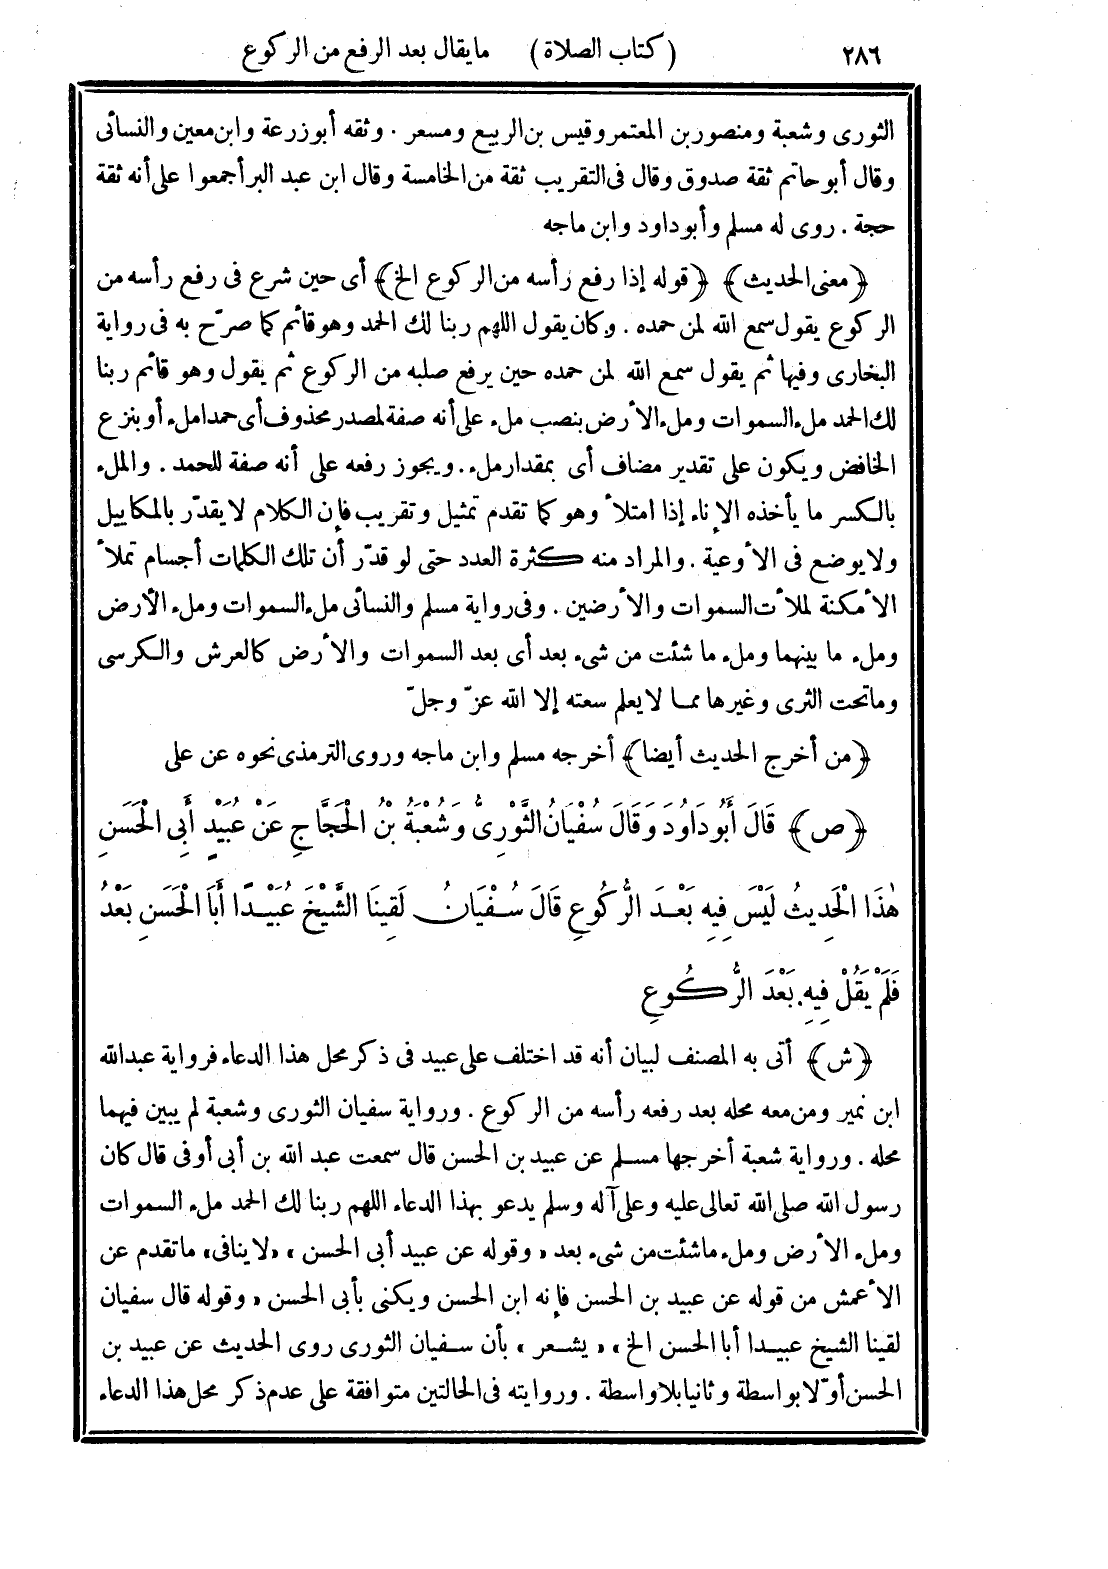 ٢٨٦ (كتاب الصلاة) مايقال بعد الرفع من الركوع
الثورى وشعبة ومنصور بن المعتمر وقيس بن الربيع ومسعر . وثقه أبو زرعة وابن معين والنسائى
وقال أبو حاتم ثقة صدوق وقال فى التقريب ثقة من الخامسة وقال ابن عبد البر أجمعوا على أنه ثقة
حجة . روى له مسلم وأبو داود وابن ماجه
﴿معنى الحديث﴾ ﴿قوله إذا رفع رأسه من الركوع الخ﴾ أى حين شرع فى رفع رأسه من
الركوع يقول سمع الله لمن حمده . وكان يقول اللهم ربنا لك الحمد وهو قائم كما صرّح به فى رواية
البخارى وفيها ثم يقول سمع الله لمن حمده حين يرفع صلبه من الركوع ثم يقول وهو قائم ربنا
لك الحمد ملء السموات وملء الأرض بنصب ملء على أنه صفة لمصدر محذوف أى حمدا ملء أو بنزع
الخافض ويكون على تقدير مضاف أى بمقدار ملء . ويجوز رفعه على أنه صفة للحمد . والملء
بالكسر ما يأخذه الإناء إذا امتلأ وهو كما تقدم تمثيل وتقريب فإن الكلام لا يقدّر بالمكاييل
ولا يوضع فى الأوعية . والمراد منه كثرة العدد حتى لو قدّر أن تلك الكلمات أجسام تملأ
الأمكنة لملأت السموات والأرضين . وفى رواية مسلم والنسائى ملء السموات وملء الأرض
وملء ما بينهما وملء ما شئت من شىء بعد أى بعد السموات والأرض كالعرش والكرسى
وماتحت الثرى وغيرها مما لا يعلم سعته إلا الله عزّ وجلّ
﴿من أخرج الحديث أيضا﴾ أخرجه مسلم وابن ماجه وروى الترمذى نحوه عن على
﴿ص﴾ قَالَ أَبُو دَاوُدَ وَقَالَ سُفْيَانُ الثَّوْرِىُّ وَشُعْبَةُ بْنُ الْحَجَّاجِ عَنْ عُبَيْدٍ أَبِى الْحَسَنِ
هٰذَا الْحَدِيثُ لَيْسَ فِيهِ بَعْدَ الرُّكُوعِ قَالَ سُفْيَانُ لَقِينَا الشَّيْخَ عُبَيْدًا أَبَا الْحَسَنِ بَعْدُ
فَلَمْ يَقُلْ فِيهِ بَعْدَ الرُّكُوعِ
﴿ش﴾ أتى به المصنف لبيان أنه قد اختلف على عبيد فى ذكر محل هذا الدعاء فرواية عبد الله
ابن نمير ومن معه محله بعد رفعه رأسه من الركوع . ورواية سفيان الثورى وشعبة لم يبين فيهما
محله . ورواية شعبة أخرجها مسلم عن عبيد بن الحسن قال سمعت عبد الله بن أبى أوفى قال كان
رسول الله صلى الله تعالى عليه وعلى آله وسلم يدعو بهذا الدعاء اللهم ربنا لك الحمد ملء السموات
وملء الأرض وملء ماشئت من شىء بعد «وقوله عن عبيد أبى الحسن» «لاينافى» ماتقدم عن
الأعمش من قوله عن عبيد بن الحسن فإنه ابن الحسن ويكنى بأبى الحسن «وقوله قال سفيان
لقينا الشيخ عبيدا أبا الحسن الخ» «يشعر» بأن سفيان الثورى روى الحديث عن عبيد بن
الحسن أوّلا بواسطة وثانيا بلا واسطة . وروايته فى الحالتين متوافقة على عدم ذكر محل هذا الدعاء